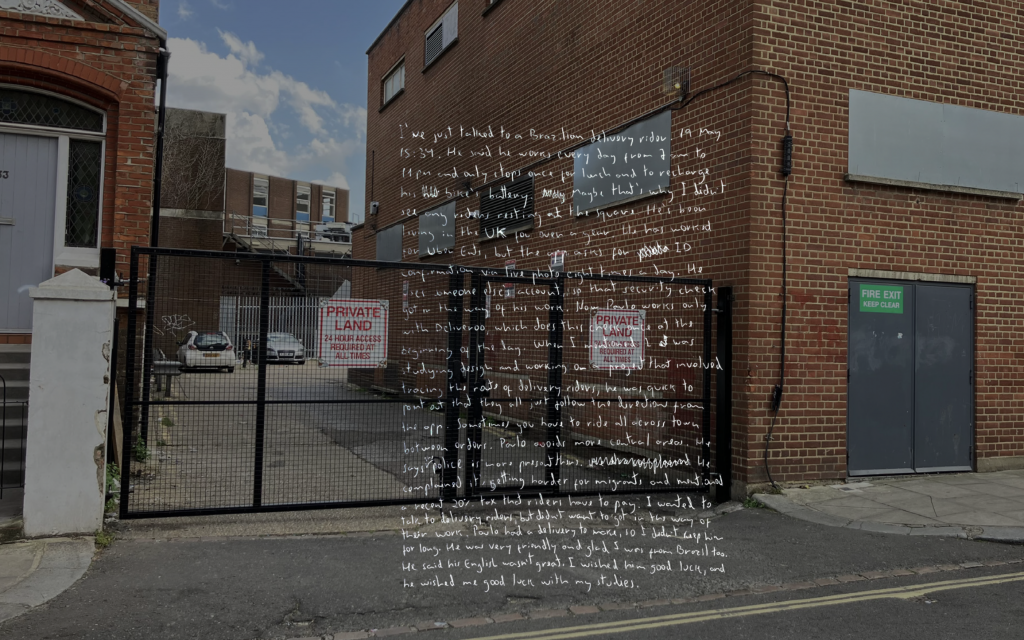 33
PRIVATE
LAND
24 HOUR ACCESS
REQUIRED AT
ALL TIMES
PRIVATE
LAND
REQUIRED AT
ALL TIMES
FIRE EXIT
KEEP CLEAR
I've just talked to a Brazilian delivery rider 19 May
15:34. He said he works every day from 7 am to
11 pm and only stops once for lunch and to recharge
his bike's battery. maybe that's why I didn't
see any riders resting at the square. He's been
living in the UK for over a year. He has worked
for Uber Eats, but the app asks for ID
confirmation via live photo eight times a day. He
someone else's account so that security check
got in the way of his work. Now Paulo works only
with Deliveroo, which does this once at the
beginning of the day. When I mentioned I was
studying design and working on a project that involved
tracing the routes of delivery riders, he was quick to
point out that they all just follow the directions from
the app. Sometimes you have to ride all across town
between orders. Paulo avoids more central areas. He
says police is more present there. He
complained it's getting harder for migrants and mentioned
a recent 20% tax that riders have to pay. I wanted to
talk to delivery riders, but didn't want to get in the way of
their work. Paulo had a delivery to make, so I didn't keep him
for long. He was very friendly and glad I was from Brazil too.
He said his English wasn't great. I wished him good luck, and
he wished me good luck with my studies.